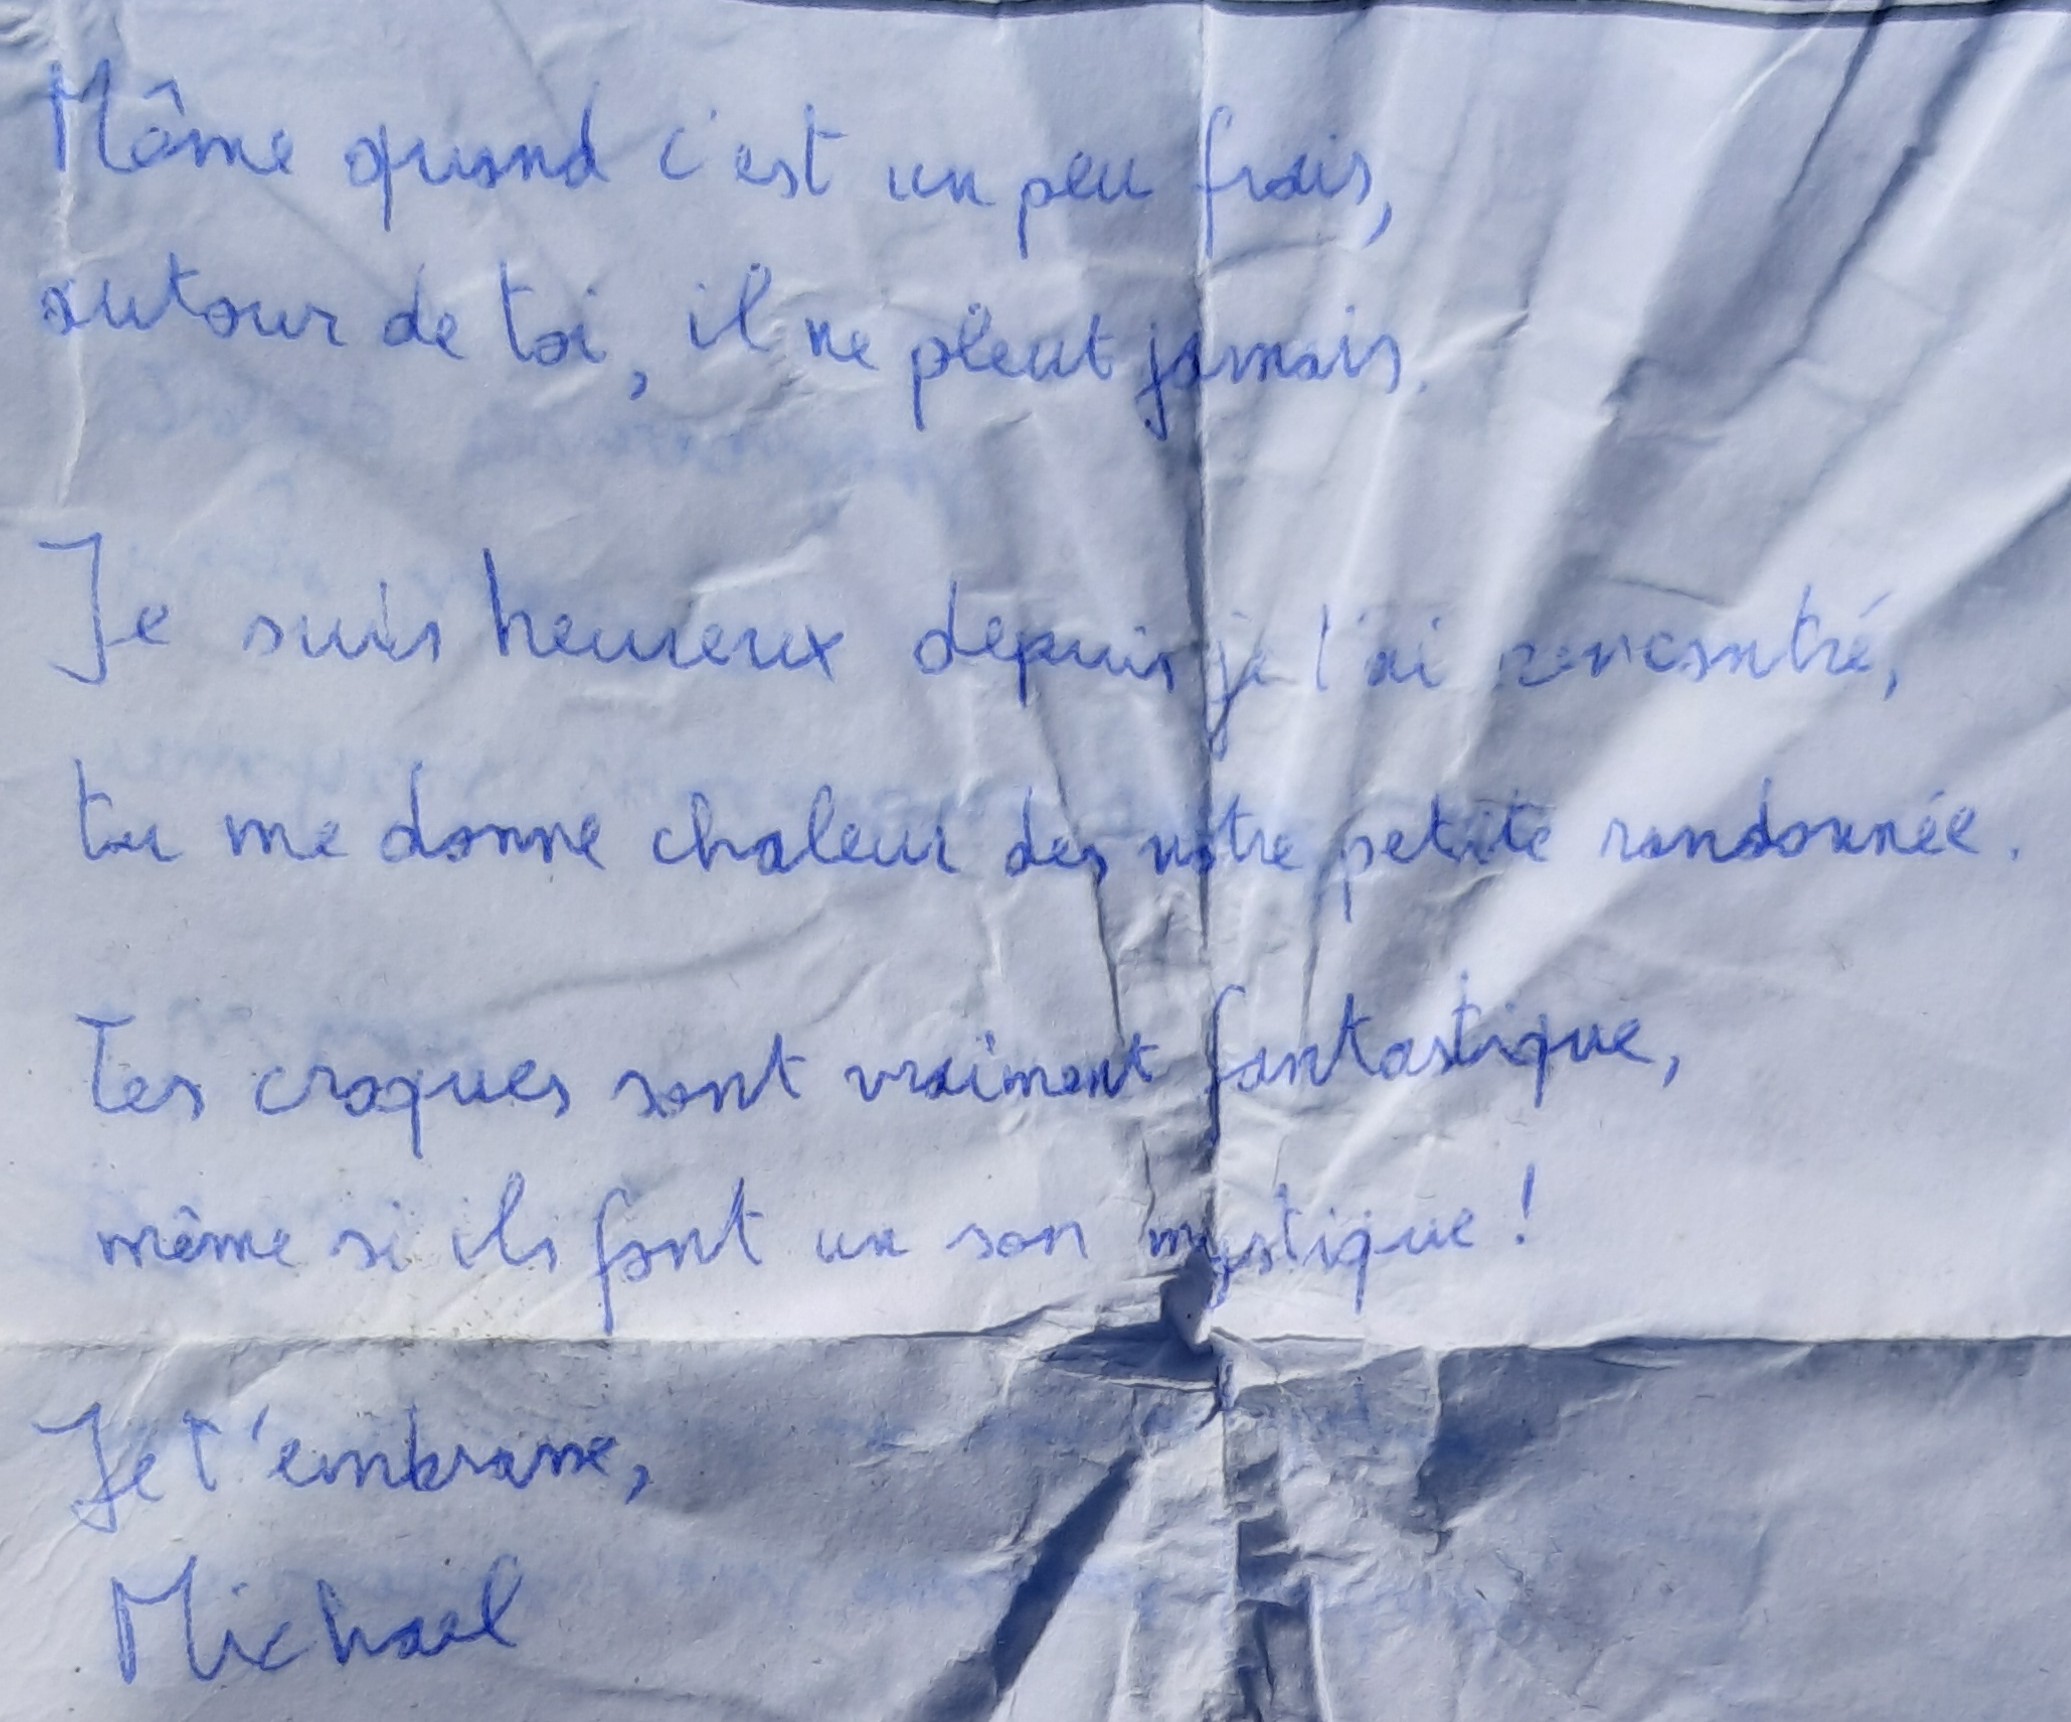 Même quand c'est un peu frais,
autour de toi, il ne pleut jamais.
Je suis heureux depuis je t'ai rencontré,
tu me donne chaleur des notre petite randonnée.
Tes croques sont vraiment fantastique,
même si ils font un son mystique !
Je t'embrasse,
Michael